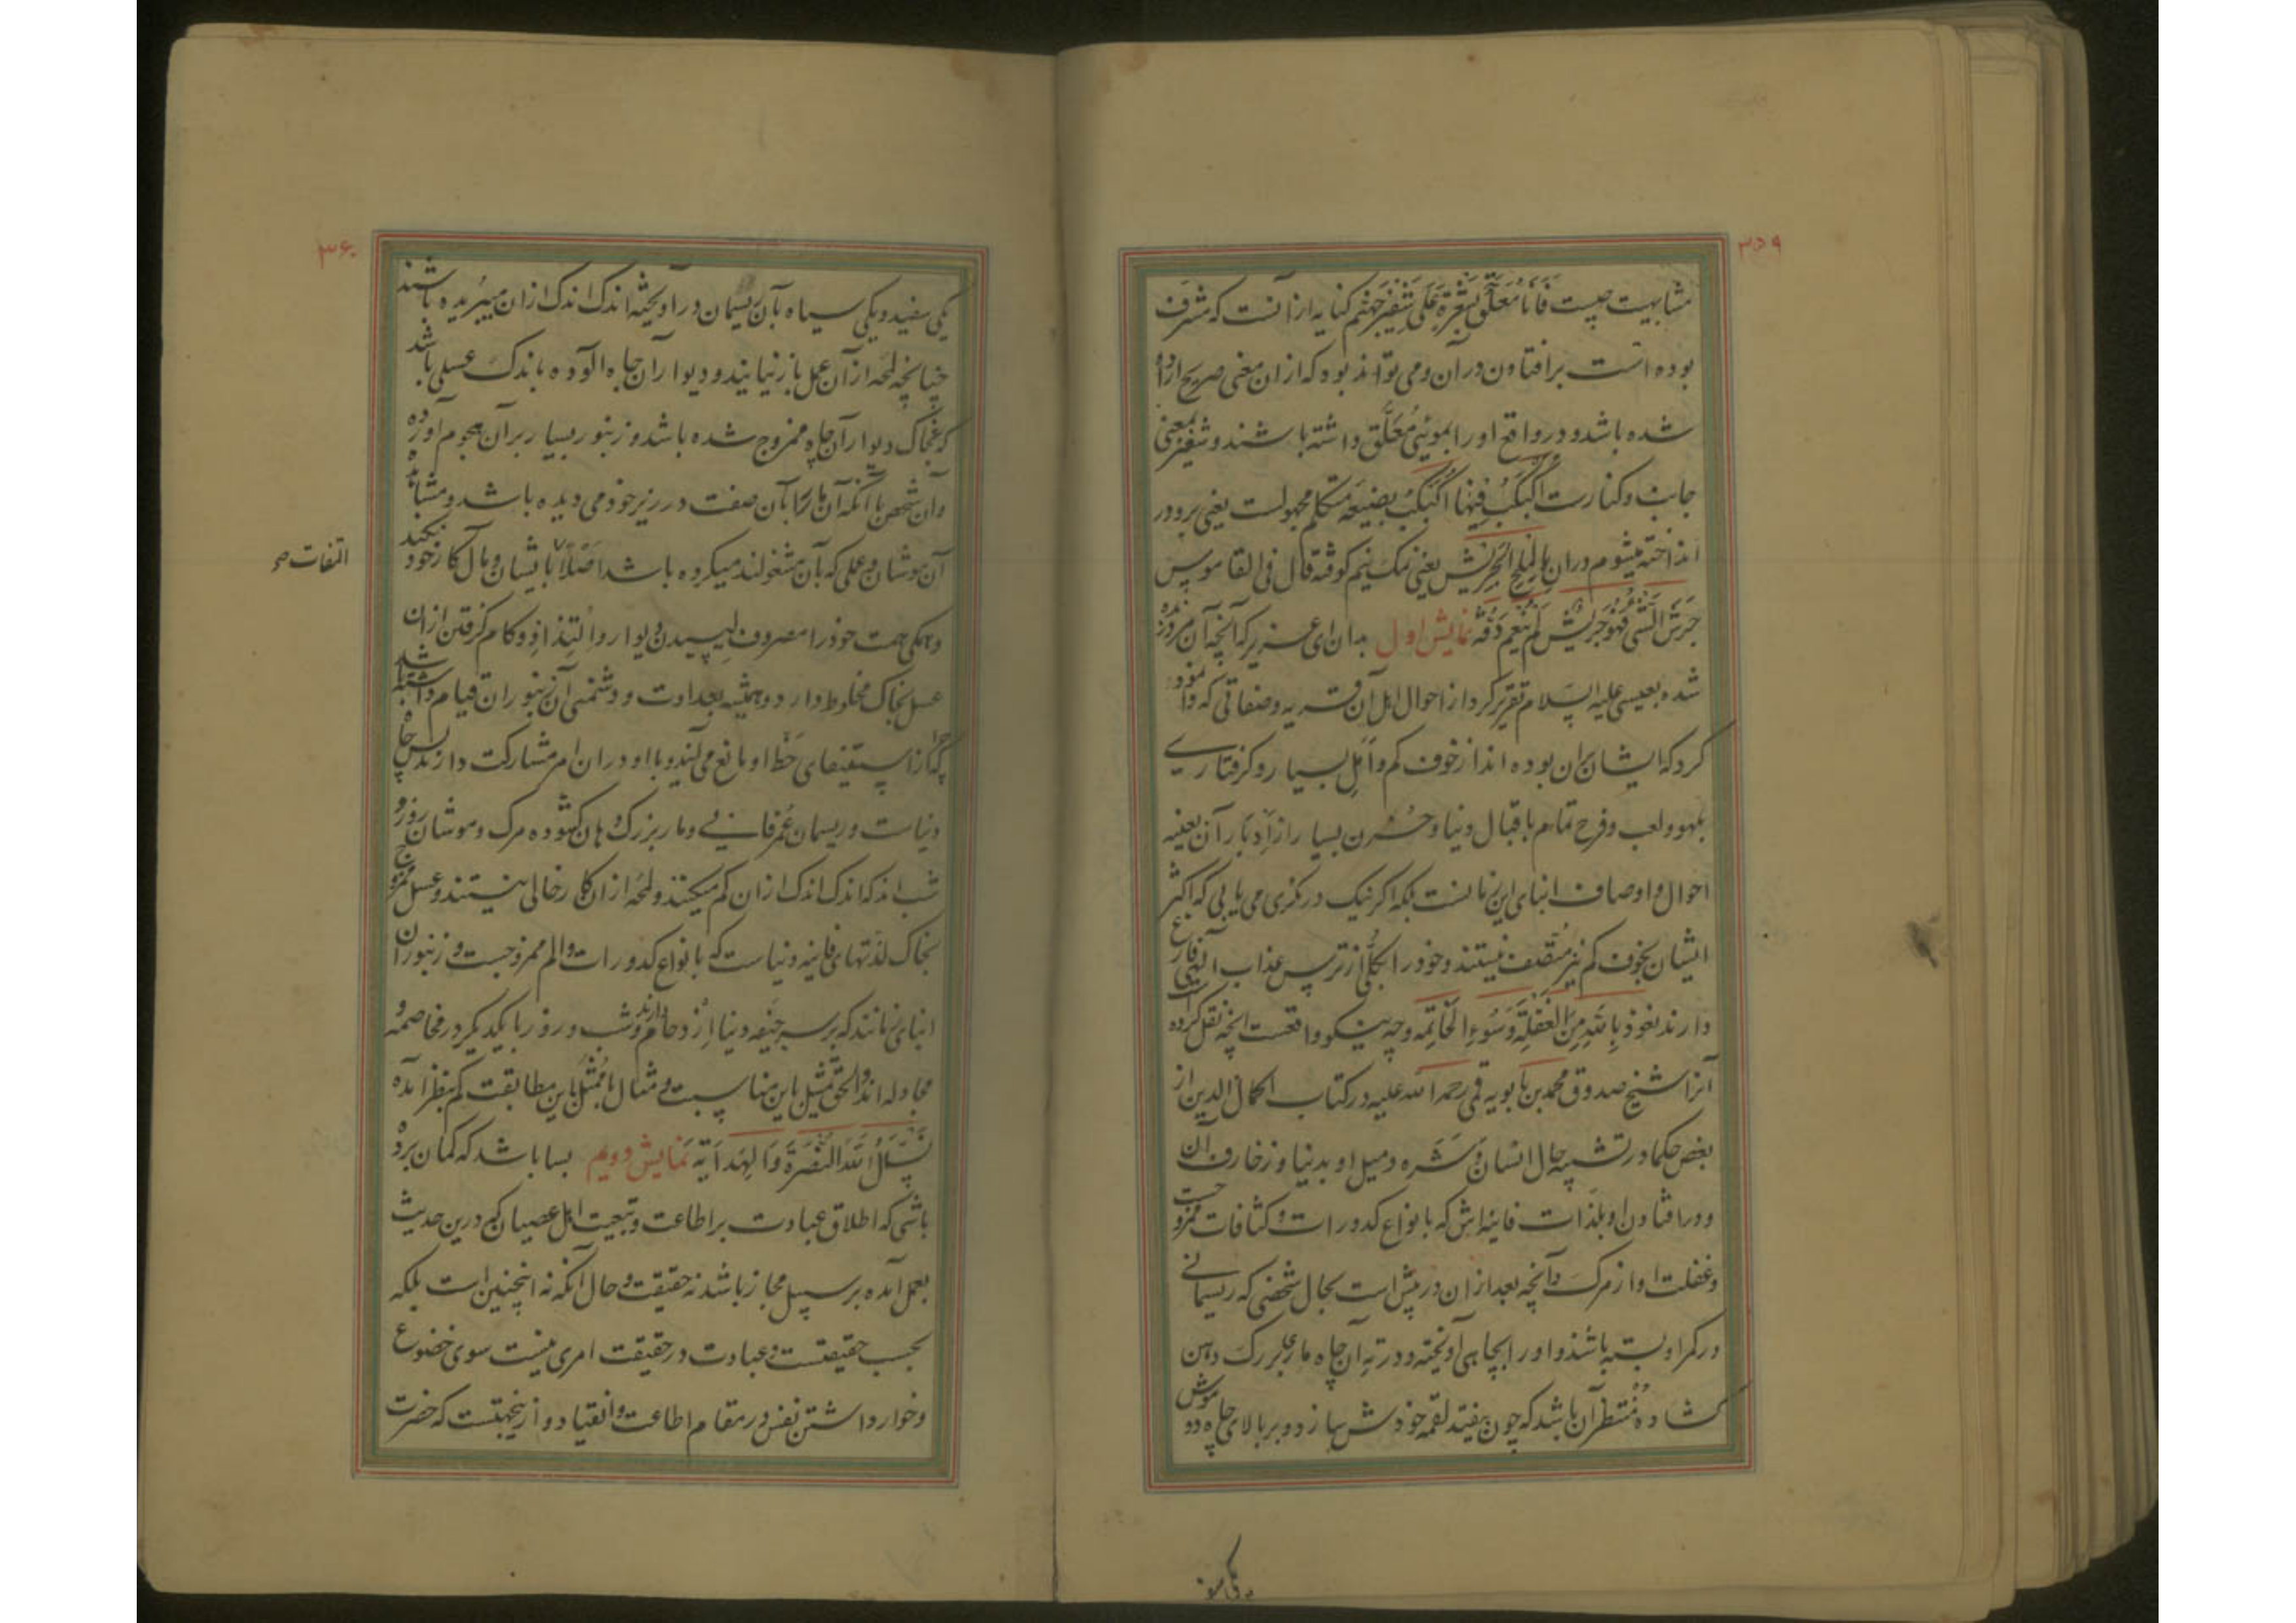 ۳۵۹
مشابهیت چیست فَأَنَا مُعَلَّقٌ بِشَعْرَةٍ عَلَى شَفِیرِ جَهَنَّم کنایه از آنست که مشرف
بوده است بر افتادن در آن و می تواند بود که از ان معنی صریح اراده
شده باشد و در واقع او را بموئی مُعَلَّق داشته باشند و شفیر بمعنی
جانب و کنارست اُکَبکَبُ فِیهَا اُکَبکَبُ بصیغه متکلم مجهولست یعنی برو در
انداخته میشوم در ان بِالمِلحِ الجَرِیش یعنی نمک نیم کوفته قال فی القاموس
جَرَشَ الشَّی فَهُوَ جَرِیش لَم یُنعِم دَقَّهُ نمایش اول بدان ای عزیز که آنچه آن مرد زنده
شده بعیسی علیه السلام تقریر کرد از احوال اهل آن قریه و صفاتی که وا نمود
کرد که ایشان بران بوده اند از خوف کم و اَمَلِ بسیار و گرفتاری
بلهو و لعب و فرح تمام باقبال دنیا و حُزن بسیار از اِدبار آن بعینه
احوال و اوصاف ابنای این زمانست بلکه اگر نیک در نگری می یابی که اکثر
ایشان بخوف کم نیز متّصف نیستند و خود را بکلّی از ترس عذاب الهی فارغ
دارند نعوذ بِاللّهِ مِنَ الغَفلَةِ وَسُوءِ الخَاتِمه و چه نیکو واقعست آنچه نقل کرده است
آنرا شیخ صدوق محمد بن بابویه قمی رحمه الله علیه در کتاب اکمال الدین از
بعض حکما در تشبیه حال انسان وَ شَرَه و میل او بدنیا و زخارف آن
و در افتادن او بلذات فانیه اش که بانواع کدورات و کثافات ممزوجست
و غفلت او از مرک و آنچه بعد از ان در پیش است بحال شخصی که ریسمانی
در کمر او بسته باشند و او را بچاهی آویخته و در تهِ آن چاه ماری بزرک دهن
کشاده مُنتظر آن باشد که چون بیفتد لقمه خودش سازد و بر بالای چاه دو موش
یکی سفید
۳۶۰
یکی سفید و یکی سیاه بآن ریسمان در آویخته اندک اندک ازان میبریده باشند
چنانچه لمحه از آن عمل باز نیایند و دیوار آن چاه آلوده باندک عسلی باشد
که بخاک دیوار آن چاه ممزوج شده باشد و زنبور بسیار بر آن هجوم آورده
و آن شخص با آنکه آن مار را بآن صفت در زیر خود می دیده باشد و مشاهده
آن موشان و عملی که بآن مشغولند میکرده باشد اصلًا بایشان و مال کار خود نکند
التفات صح
و همکی همت خود را مصروف لیسیدن دیوار و التذاذ و کام کرفتن ازان
عسل بخاک مخلوط دارد و همیشه بعداوت و دشمنی آن زنبوران قیام داشته باشد
چرا که از استیفای حظّ او مانع می آیند و با او در ان امر مشارکت دارند پس چاه
دنیاست و ریسمان عُمر فانی و مار بزرک دهان کشوده مرک و موشان روز و
شب اند که اندک اندک ازان کم میکنند و لمحه از ان کار خالی نیستند و عسل ممزوج
بخاک لذّتهای فانیه دنیاست که بانواع کدورات و الم ممزوجست و زنبوران
ابنای زمانند که بر سر جیفه دنیا اِزدحام دارند و شب و روز با یکدیگر در مخاصمه و
مجادله اند و الحق تمثیل باین مناسبت و مثال با مُمَثَّل باین مطابقت کم بنظر آمده
نَسأَلُ اللّهَ النُّصرَةَ وَ الهِدَایَه نمایش دویم بسا باشد که کمان برده
باشی که اطلاق عبادت بر اطاعت و تبعیت اهل عصیان که درین حدیث
بعمل آمده بر سبیل مجاز باشد نه حقیقت و حال آنکه نه اینچنین است بلکه
بحسب حقیقتست و عبادت در حقیقت امری نیست سوی خضوع
و خوار داشتن نفس در مقام اطاعت و انقیاد و ازینجهتست که حضرت